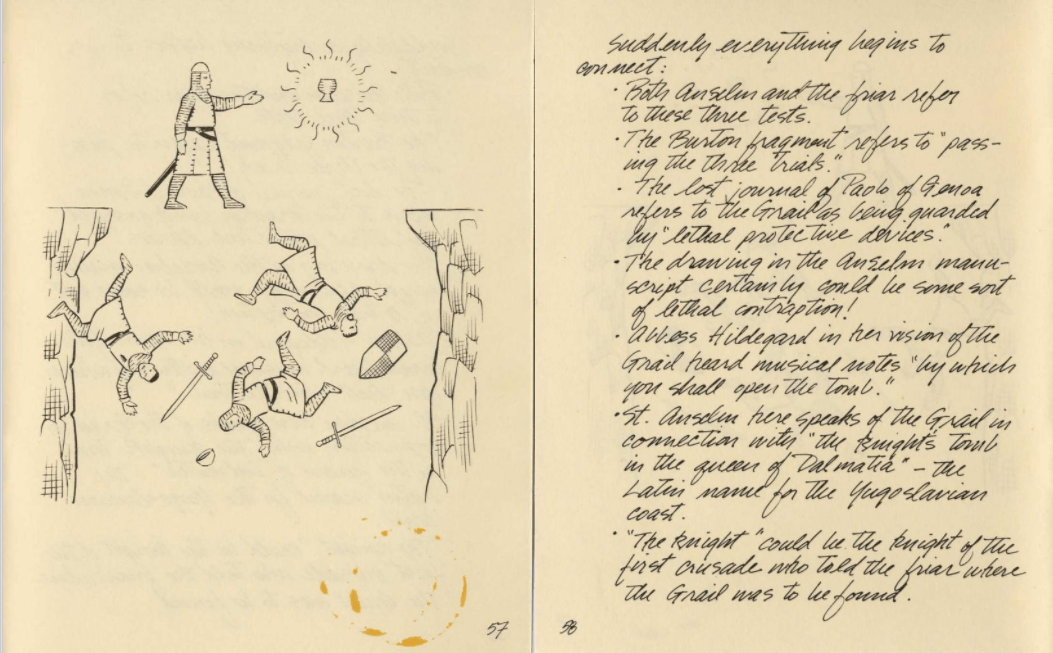 57
Suddenly everything begins to
connect:
· Both Anselm and the friar refer
to these three tests.
· The Burton fragment refers to "pass-
ing the three trials."
· The lost journal of Paolo of Genoa
refers to the Grail as being guarded
by "lethal protective devices".
· The drawing in the Anselm manu-
script certainly could be some sort
of lethal contraption!
· Abbess Hildegard in her vision of the
Grail heard musical notes "by which
you shall open the tomb."
· St. Anselm here speaks of the Grail in
connection with "the knight's tomb
in the queen of Dalmatia" – the
Latin name for the Yugoslavian
coast.
· "The knight" could be the knight of the
first crusade who told the friar where
the Grail was to be found.
58